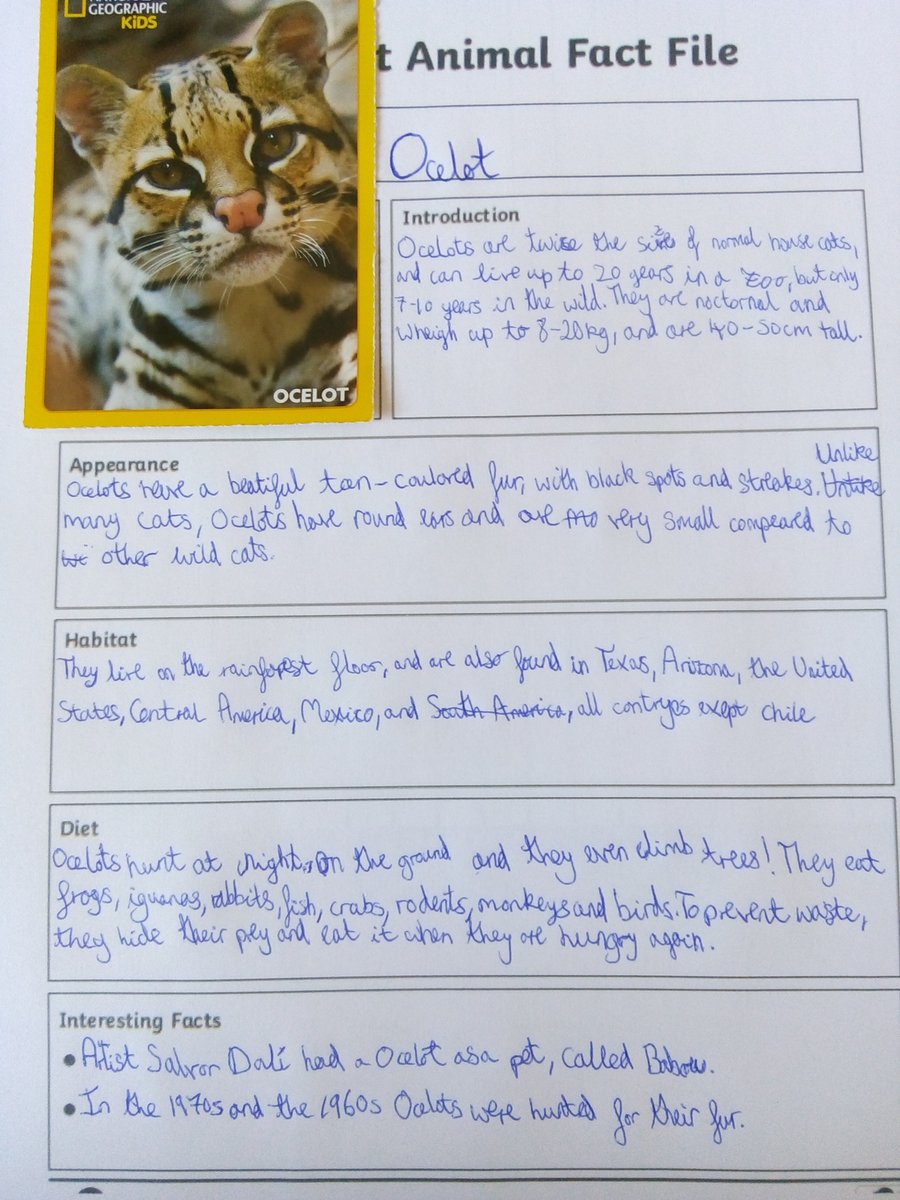 GEOGRAPHIC
KiDS
OCELOT
t Animal Fact File
Ocelot
Introduction
Ocelots are twice the size of normal house cats,
and can live up to 20 years in a zoo, but only
7-10 years in the wild. They are noctornal and
wheigh up to 8-20kg, and are 40-50cm tall.
Appearance
Unlike
Ocelots have a beatiful tan-coulored fur, with black spots and streakes. Unlike
many cats, Ocelots have round ears and are very small compeared to
other wild cats.
Habitat
They live on the rainforest floor, and are also found in Texas, Arizona, the United
States, Central America, Mexico, and South America, all contryes exept Chile
Diet
Ocelots hunt at night, on the ground and they even climb trees! They eat
frogs, iguanas, rabbits, fish, crabs, rodents, monkeys and birds. To prevent waste,
they hide their prey and eat it when they are hungry again.
Interesting Facts
• Artist Salvor Dalí had a Ocelot as a pet, called Babou.
• In the 1970s and the 1960s Ocelots were hunted for their fur.